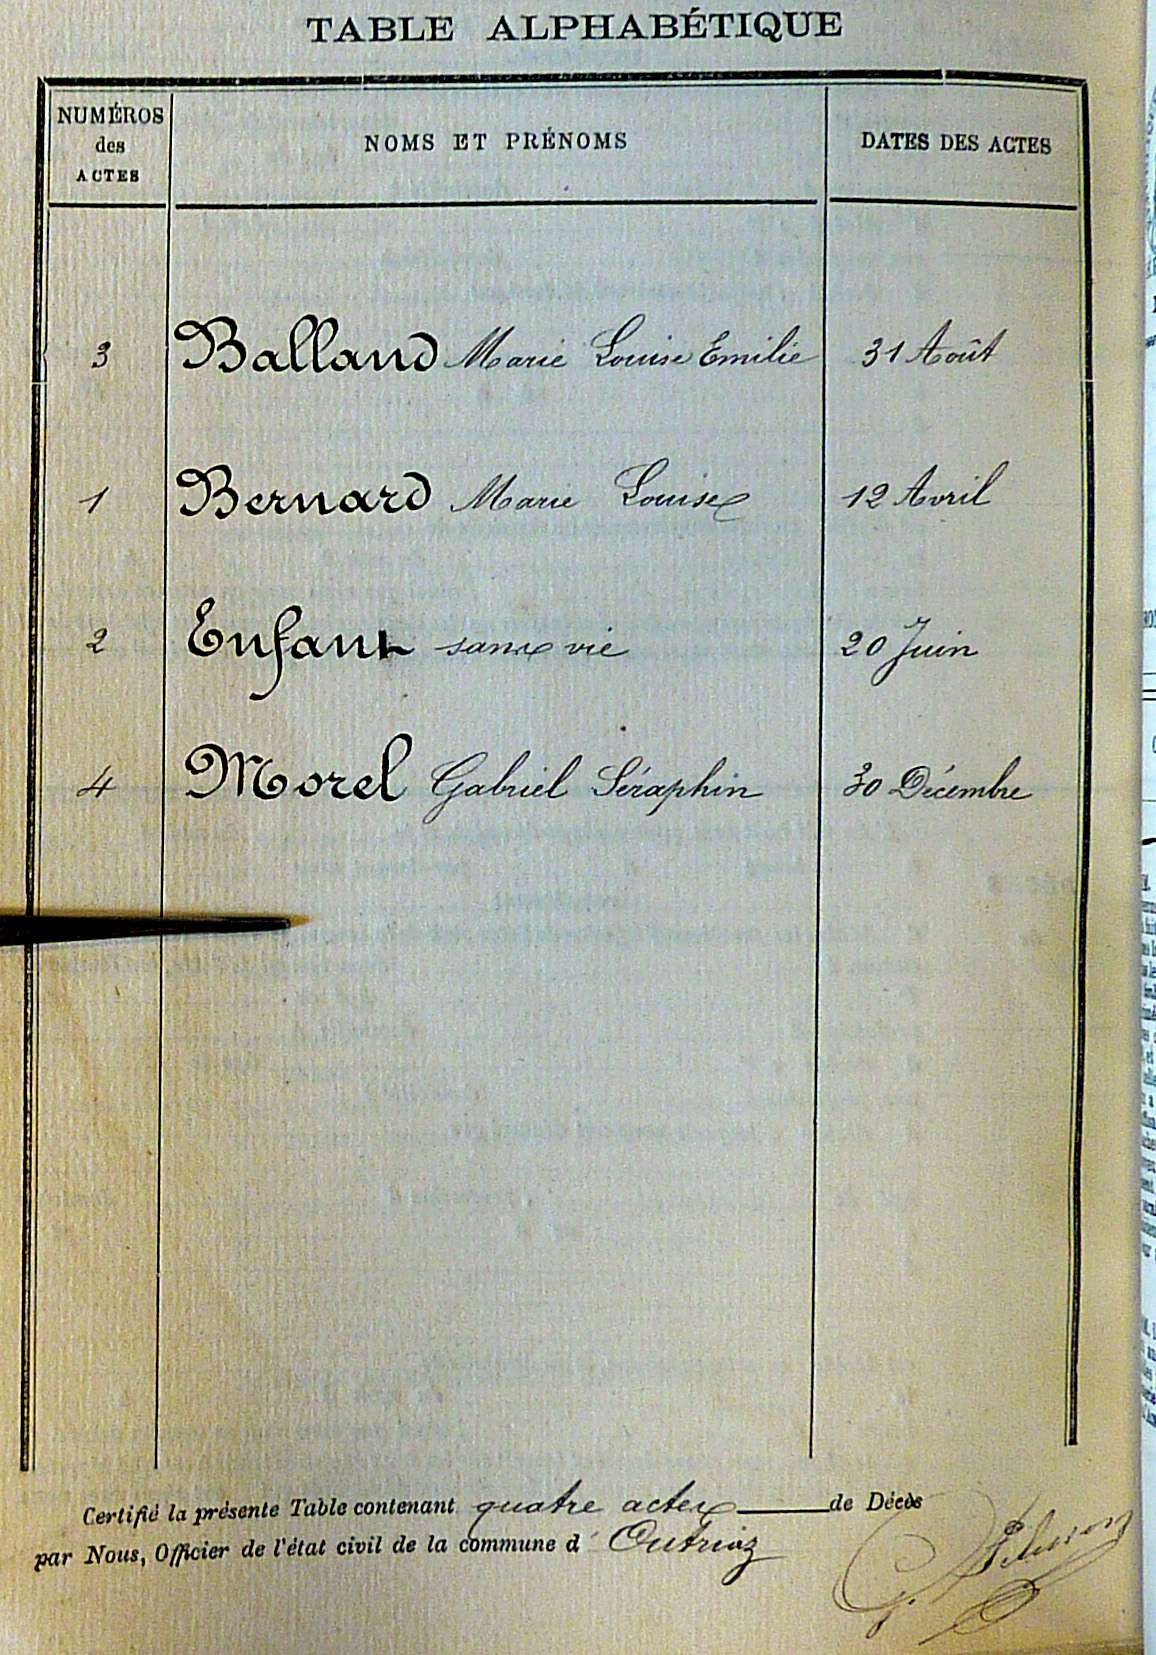 TABLE ALPHABÉTIQUE
NUMÉROS des ACTES NOMS ET PRÉNOMS DATES DES ACTES
3 Balland Marie Louise Emilie 31 Août
1 Bernard Marie Louise 12 Avril
2 Enfant sans vie 20 Juin
4 Morel Gabriel Séraphin 30 Décembre
Certifié la présente Table contenant quatre actes de Décès
par Nous, Officier de l'état civil de la commune d' Outriaz